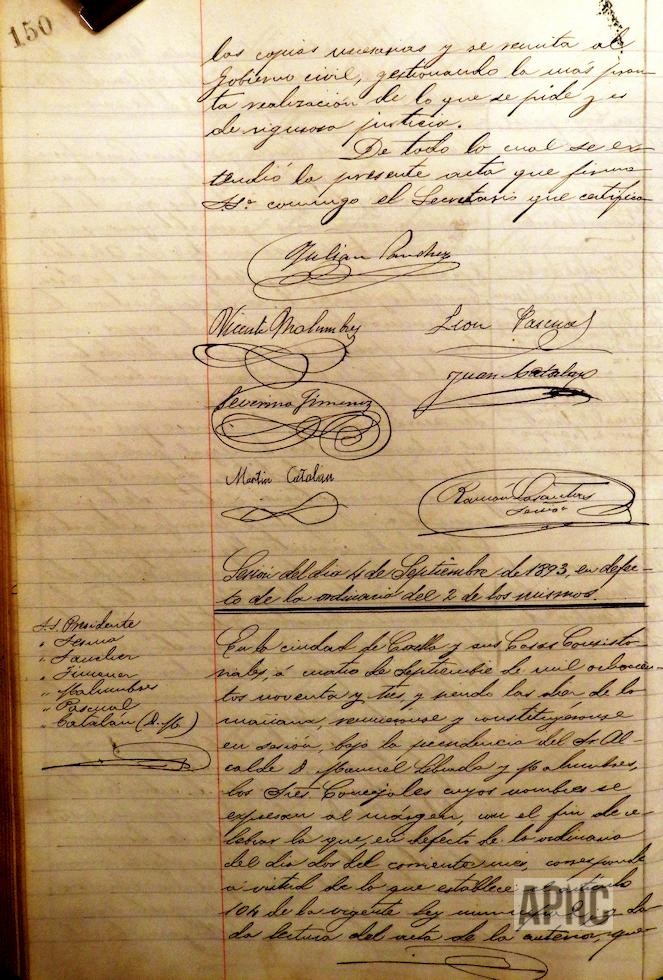 150
las copias necesarias y se remita al
Gobierno civil, gestionando la más pron-
ta realización de lo que se pide y es
de rigurosa justicia.
De todo lo cual se ex-
tendió la presente acta que firma
S.Sª. conmigo el Secretario que certifico
Julian Sanchez
Vicente Malumbres
Leon Pascual
Juan
Severino Jimenez
Martin Catalan
Ramón Lasantas
Sesión del dia 4 de Septiembre de 1893, en defec-
to de la ordinaria del 2 de los mismos.
S.S. Presidente
" Sesma
"
" Jimenez
" Malumbres
" Pascual
" Catalán (D. M.)
En la ciudad de Corella y sus Casas Consisto-
riales, á cuatro de Septiembre de mil ochocien-
tos noventa y tres, y siendo las diez de la
mañana, reunieronse y constituyéronse
en sesión, bajo la presidencia del Sr. Al-
calde D. Manuel y Malumbres,
los Sres. Concejales cuyos nombres se
expresan al márgen, con el fin de ce-
lebrar la que, en defecto de la ordinaria
del dia dos del corriente mes, corresponde
a virtud de lo que establece el articulo
104 de la vigente ley municipal y da-
da lectura del acta de la anterior, que
APHC